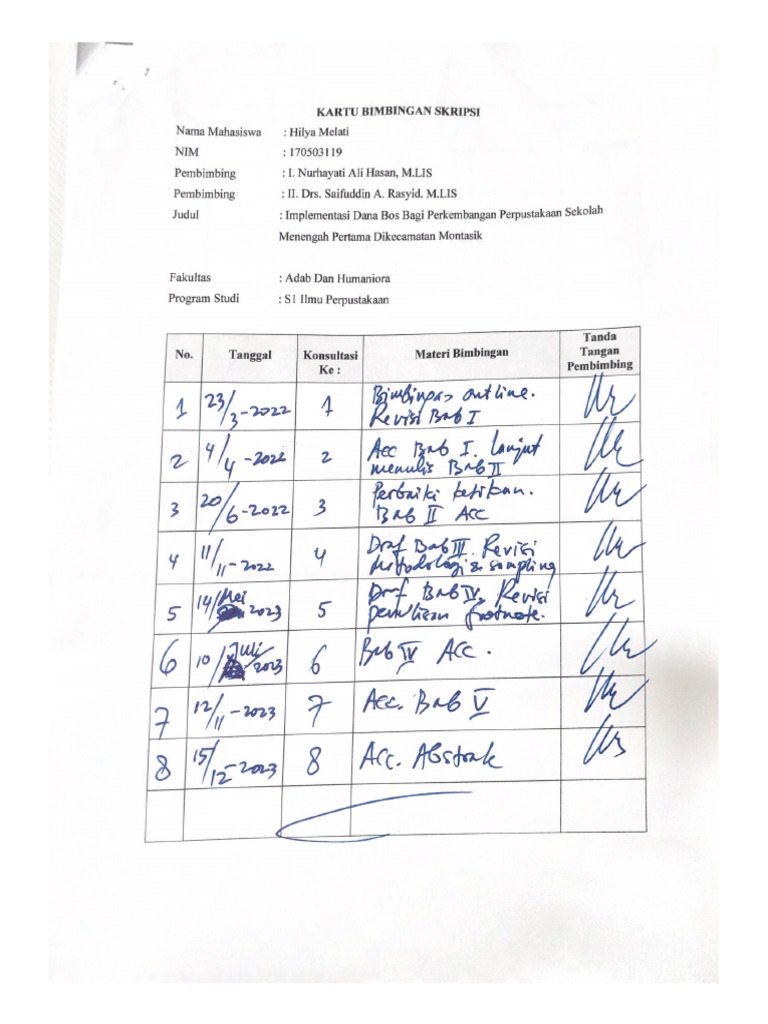 KARTU BIMBINGAN SKRIPSI
Nama Mahasiswa : Hilya Melati
NIM : 170503119
Pembimbing : I. Nurhayati Ali Hasan, M.LIS
Pembimbing : II. Drs. Saifuddin A. Rasyid. M.LIS
Judul : Implementasi Dana Bos Bagi Perkembangan Perpustakaan Sekolah
Menengah Pertama Dikecamatan Montasik
Fakultas : Adab Dan Humaniora
Program Studi : S1 Ilmu Perpustakaan
No. Tanggal Konsultasi Ke : Materi Bimbingan Tanda Tangan Pembimbing
1 23/3-2022 1 Bimbingan outline.
Revisi Bab I
2 4/4-2022 2 Acc Bab I. lanjut
menulis Bab II
3 20/6-2022 3 Perbaiki ketikan.
Bab II Acc
4 11/11-2022 4 Draf Bab III. Revisi
metodologi & sampling
5 14/Mei 2023 5 Draf Bab IV. Revisi
penulisan footnote.
6 10/Juli 2023 6 Bab IV Acc.
7 12/11-2023 7 Acc. Bab V
8 15/12-2023 8 Acc. Abstrak